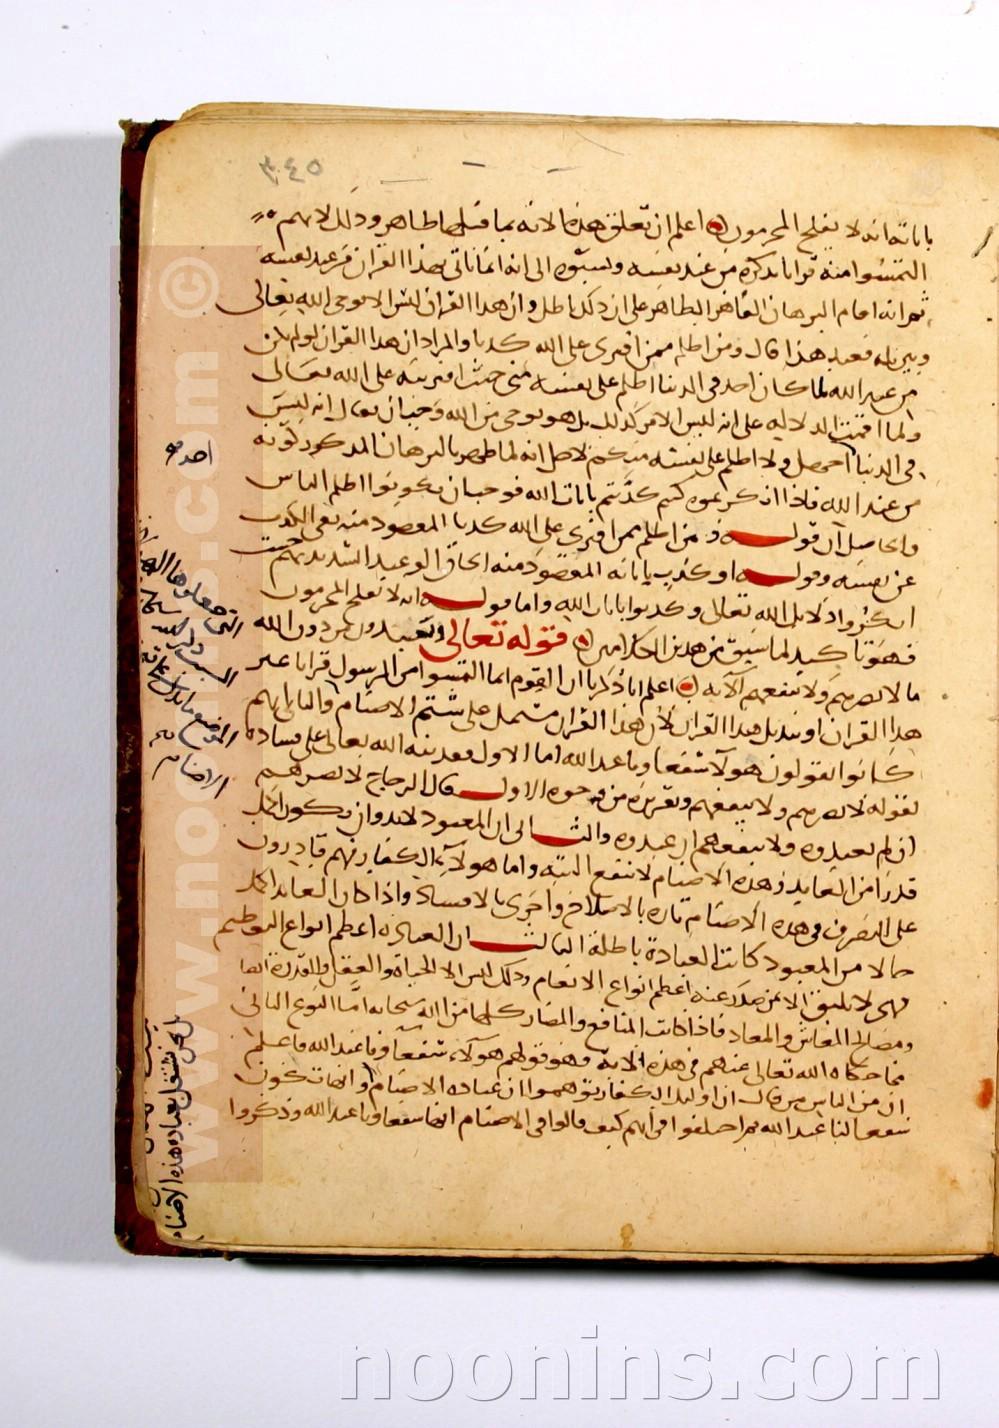 ٣٤٥
باياته انه لا يفلح المجرمون اعلم ان تعلق هذه الاية بما قبلها ظاهر وذلك لانهم
التمسوا منه قرانا يذكره من عند نفسه ونسبوه الى انه انما ياتي بهذا القران من عند نفسه
ثم انه اقام البرهان القاهر الظاهر على ان ذلك باطل وان هذا القران ليس الا بوحي الله تعالى
وتنزيله فعند هذا قال ومن اظلم ممن افترى على الله كذبا والمراد ان هذا القران لو لم يكن
من عند الله لما كان احد في الدنيا اظلم على نفسه مني حيث افتريته على الله تعالى
ولما اقمت الدلالة على انه ليس الامر كذلك بل هو بوحي من الله وجب ان يقال انه ليس
في الدنيا اجهل ولا اظلم على نفسه منكم لاجل انه لما ظهر بالبرهان المذكور كونه
من عند الله فاذا انكرتموه كنتم كذبتم بايات الله فوجب ان يكونوا اظلم الناس
والحاصل ان قوله ومن اظلم ممن افترى على الله كذبا المقصود منه نفي الكذب
عن نفسه وقوله او كذب باياته المقصود منه الحاق الوعيد الشديد بهم حيث
انكروا دلايل الله تعالى وكذبوا بايات الله واما قوله انه لا يفلح المجرمون
فهو تاكيد لما سبق من هذين الكلامين قوله تعالى ويعبدون من دون الله
ما لا يضرهم ولا ينفعهم الاية اعلم انا ذكرنا ان القوم انما التمسوا من الرسول قرانا غير
هذا القران او تبديل هذا القران لان هذا القران مشتمل على شتم الاصنام والثاني انهم
كانوا يقولون هولا شفعاونا عند الله اما الاول فقد نبه الله تعالى على فساده
بقوله لا يضرهم ولا ينفعهم وتقريره من وجوه الاول قال الزجاج لا يضرهم
ان لم يعبدوه ولا ينفعهم ان عبدوه والثاني ان المعبود لا بد وان يكون اكمل
قدرة من العابد وهذه الاصنام لا تنفع البتة واما هولاء الكفار فهم قادرون
على التصرف في هذه الاصنام تارة بالاصلاح واخرى بالافساد واذا كان العابد اكمل
حالا من المعبود كانت العبادة باطلة الثالث ان العبادة اعظم انواع التعظيم
فهي لا تليق الا بمن صدر عنه اعظم انواع الانعام وذلك ليس الا الحياة والعقل والقدرة
ومصالح المعاش والمعاد فاذا كانت المنافع والمضار كلها من الله سبحانه اما النوع الثاني
مما حكاه الله تعالى عنهم في هذه الاية فهو قولهم هولاء شفعاونا عند الله فاعلم
ان من الناس من قال ان اوليك الكفار توهموا ان عبادة الاصنام وانها تكون
شفعا لنا عند الله ثم اختلفوا في انهم كيف قالوا في الاصنام انها شفعاونا عند الله وذكروا
التي جعلوها
الموضع
الاصنام
بل نحن نشتغل بعبادة هذه الاصنام
www.noonins.com ©
noonins.com